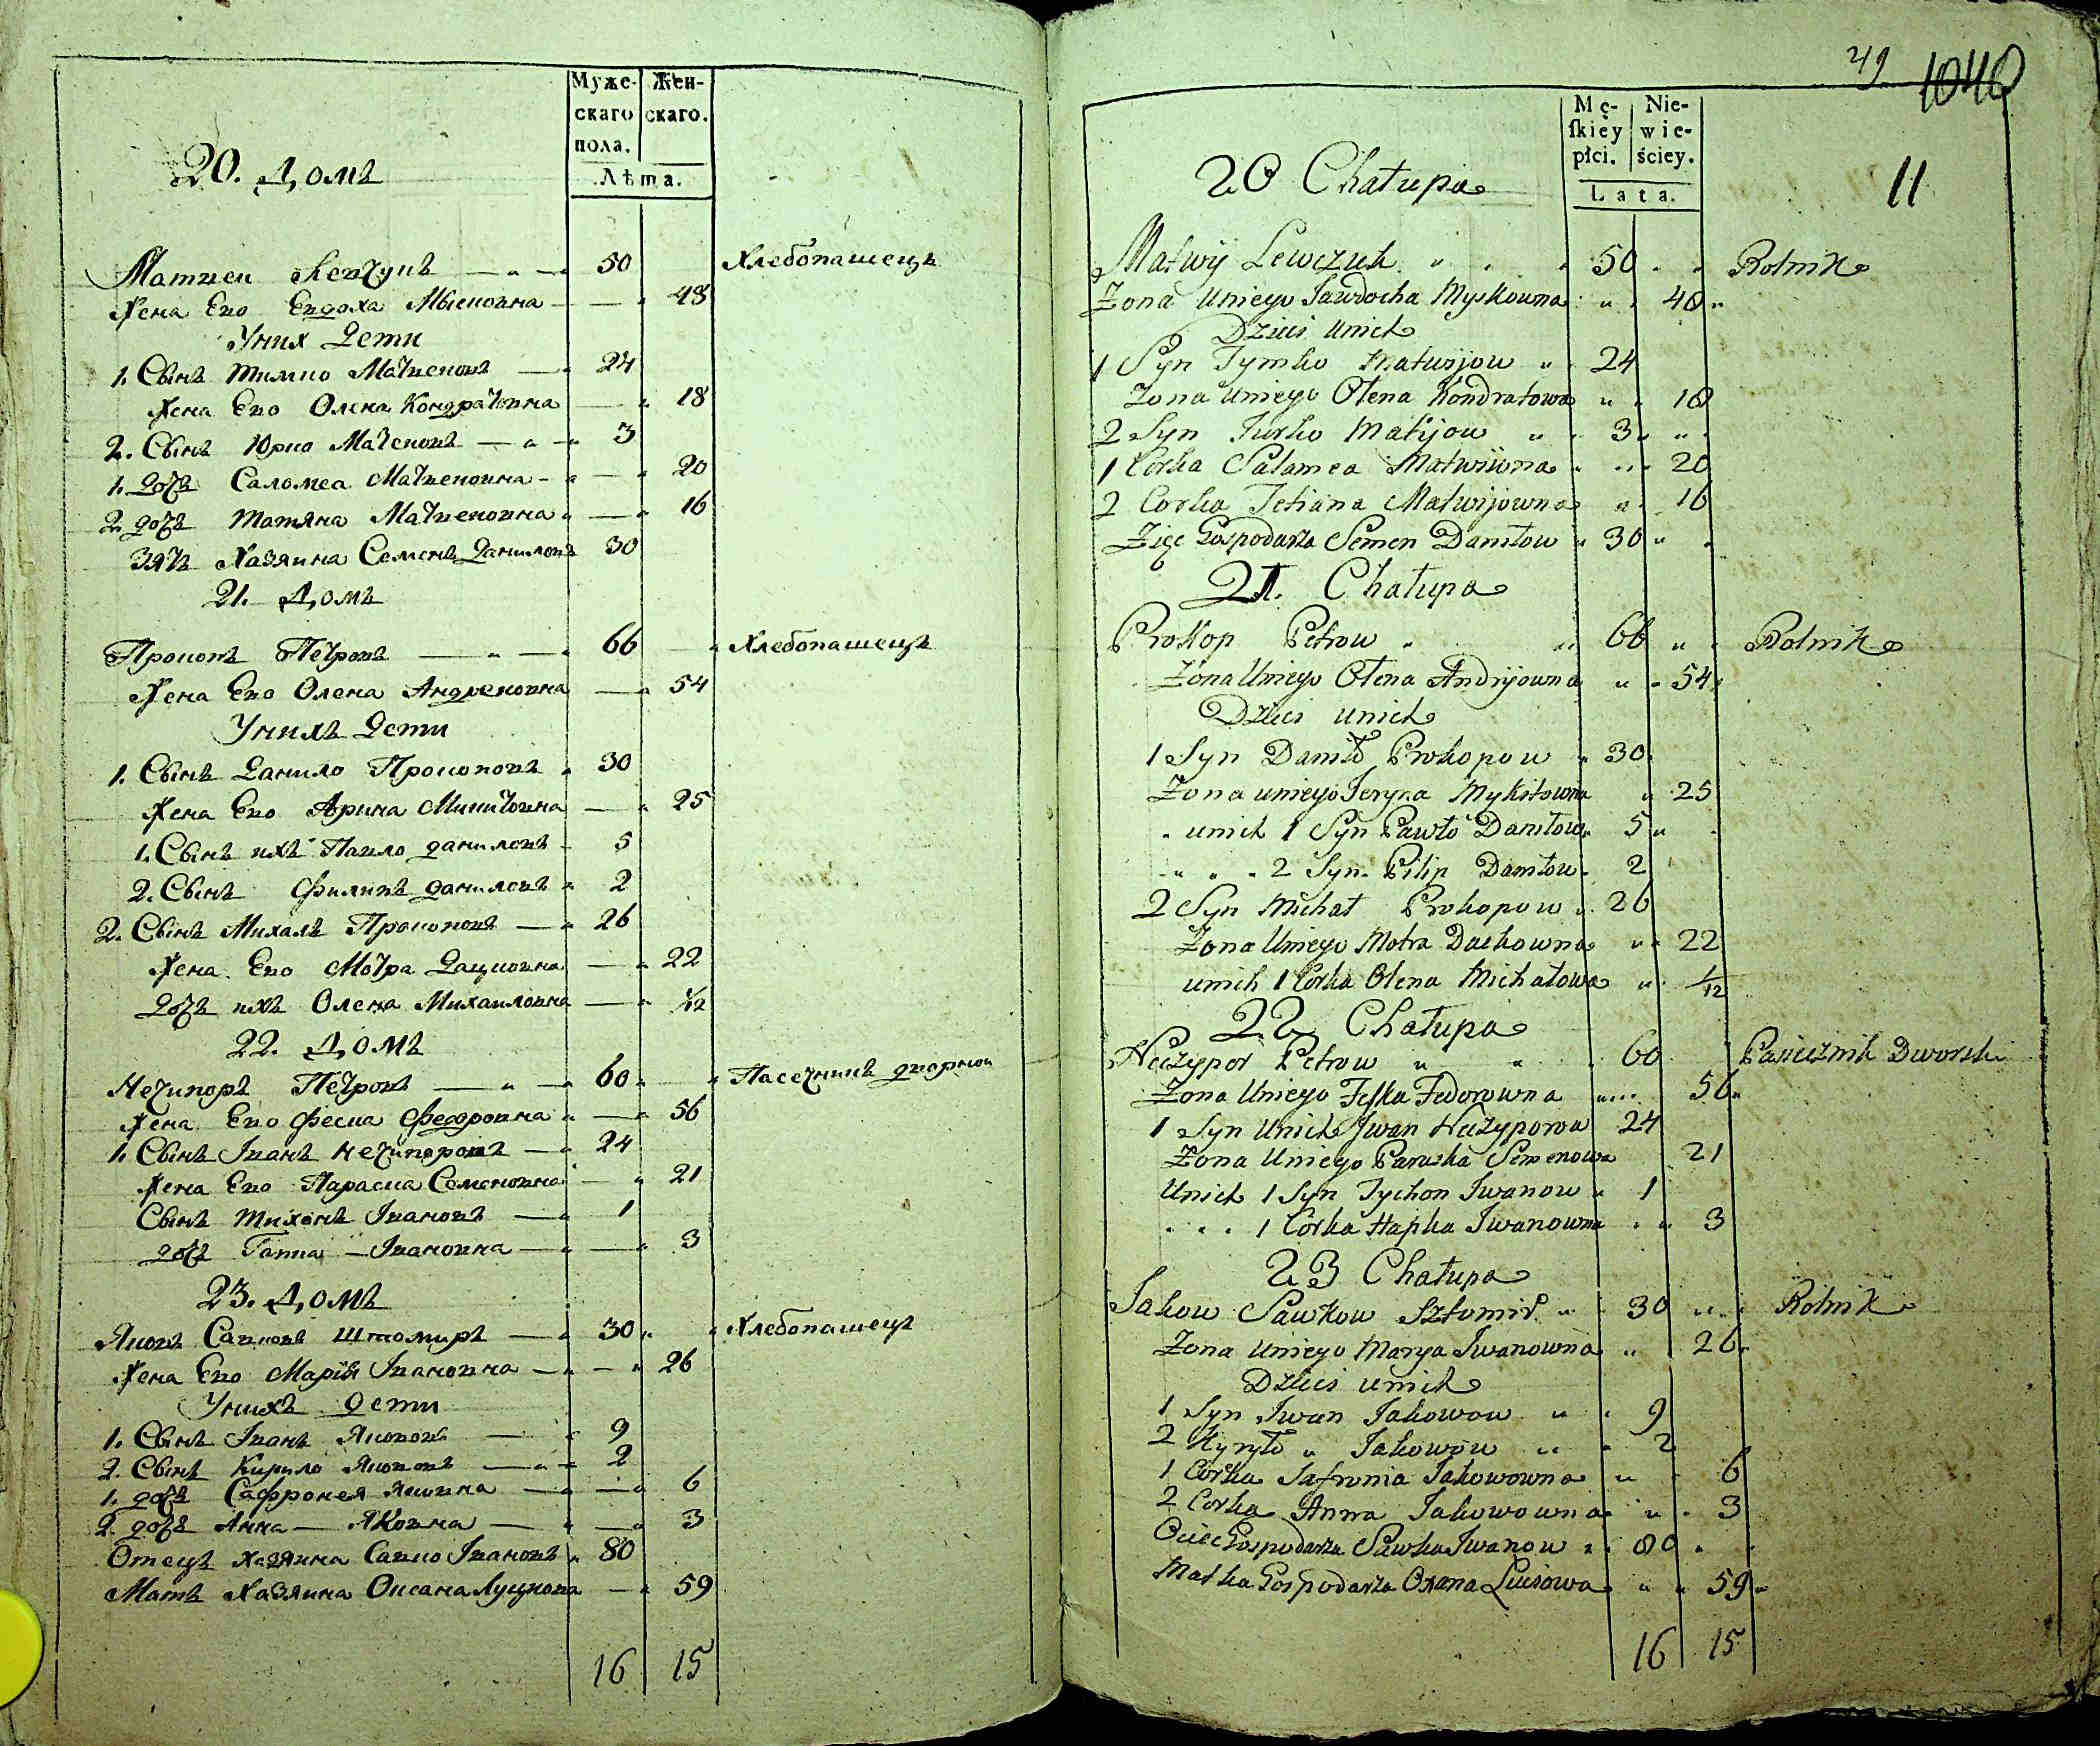 Муже-
скаго
пола.
Жен-
скаго.
Лѣта.
20. Домъ
Матвей Левчукъ 50 Хлебопашецъ
Жена Его Евдоха Мыс 48
У них Дети
1. Сынъ Тимко Матвеювъ 24
Жена Его Олена Кондратовна 18
2. Сынъ Юрко Матвеювъ 3
1. дочь Саломеа Матвеювна 20
2 дочь Татяна Матвеювна 16
Зять Хазяина Семенъ Даниловъ 30
21. Домъ
Прокопъ Петровъ 66 Хлебопашецъ
Жена Его Олена Андреювна 54
У нихъ Дети
1. Сынъ Данило Прокоповъ 30
Жена Его Арина Микитовна 25
1. Сынъ ихъ Павло даниловъ 5
2. Сынъ Филипъ даниловъ 2
2. Сынъ Михалъ Прокоповъ 26
Жена Его Мотра Дацковна 22
Дочь ихъ Олена Михаиловна 1/12
22. Домъ
Нечипоръ Петровъ 60 Пасечникъ дворной
Жена Его Феска Федоровна 56
1. Сынъ Іванъ Нечипоровъ 24
Жена Его Параска Семеновна 21
Сынъ Тихонъ Івановъ 1
дочь Гапка Івановна 3
23. Домъ
Яковъ Савковъ Штомиръ 30 Хлебопашецъ
Жена Его Марія Івановна 26
У нихъ дети
1. Сынъ Іванъ Якововъ 9
2. Сынъ Кирило Якововъ 2
1. дочь Сафронея Яковна 6
2. дочь Анна Яковна 3
Отецъ хазяина Савко Івановъ 80
Мать Хазяина Оксана Луцкова 59
16 15
49 1040
Mę-
ſkiey
płci.
Nie-
wie-
ściey.
Lata.
11
20 Chałupa
Matwij Lewczuk 50 Rolnik
Zona Uniego Jawdocha Myskowna 48
Dzieci Unich
1 Syn Tymko Matwijow 24
Zona Uniego Ołena Kondratowa 18
2 Syn Jurko Matijow 3
1 Corka Salamea Matwiiwna 20
2 Corka Tetiana Matwijowna 16
Zięc Gospodarza Semen Daniłow 30
21. Chałupa
Prokop Petrow 66 Rolnik
Zona Uniego Ołena Andryjowna 54
Dzieci unich
1 Syn Daniło Prokopow 30
Zona uniego Jeryna Mykitowna 25
unich 1 Syn Pawło Daniłow 5
2 Syn Pilip Daniłow 2
2 Syn Michał Prokopow 26
Zona Uniego Motra Dackowna 22
unich 1 Corka Ołena Michałowa 1/12
22 Chałupa
Neczypor Petrow 60 Pasiecznik Dworski
Zona Uniego Feſka Fedorowna 56
1 Syn Unich Jwan Neczyporow 24
Zona Uniego Paraska Semenowa 21
Unich 1 Syn Tychon Jwanow 1
1 Corka Hapka Jwanowna 3
23 Chałupa
Jakow Sawkow Sztomir 30 Rolnik
Zona Uniego Marya Jwanowna 26
Dzieci unich
1 Syn Jwan Jakowow 9
2 Kyryło Jakowow 2
1 Corka Safronia Jakowowna 6
2 Corka Anna Jakowowna 3
Ociec Gospodarza Sawka Jwanow 80
Matka Gospodarza Oxana Lucowa 59
16 15